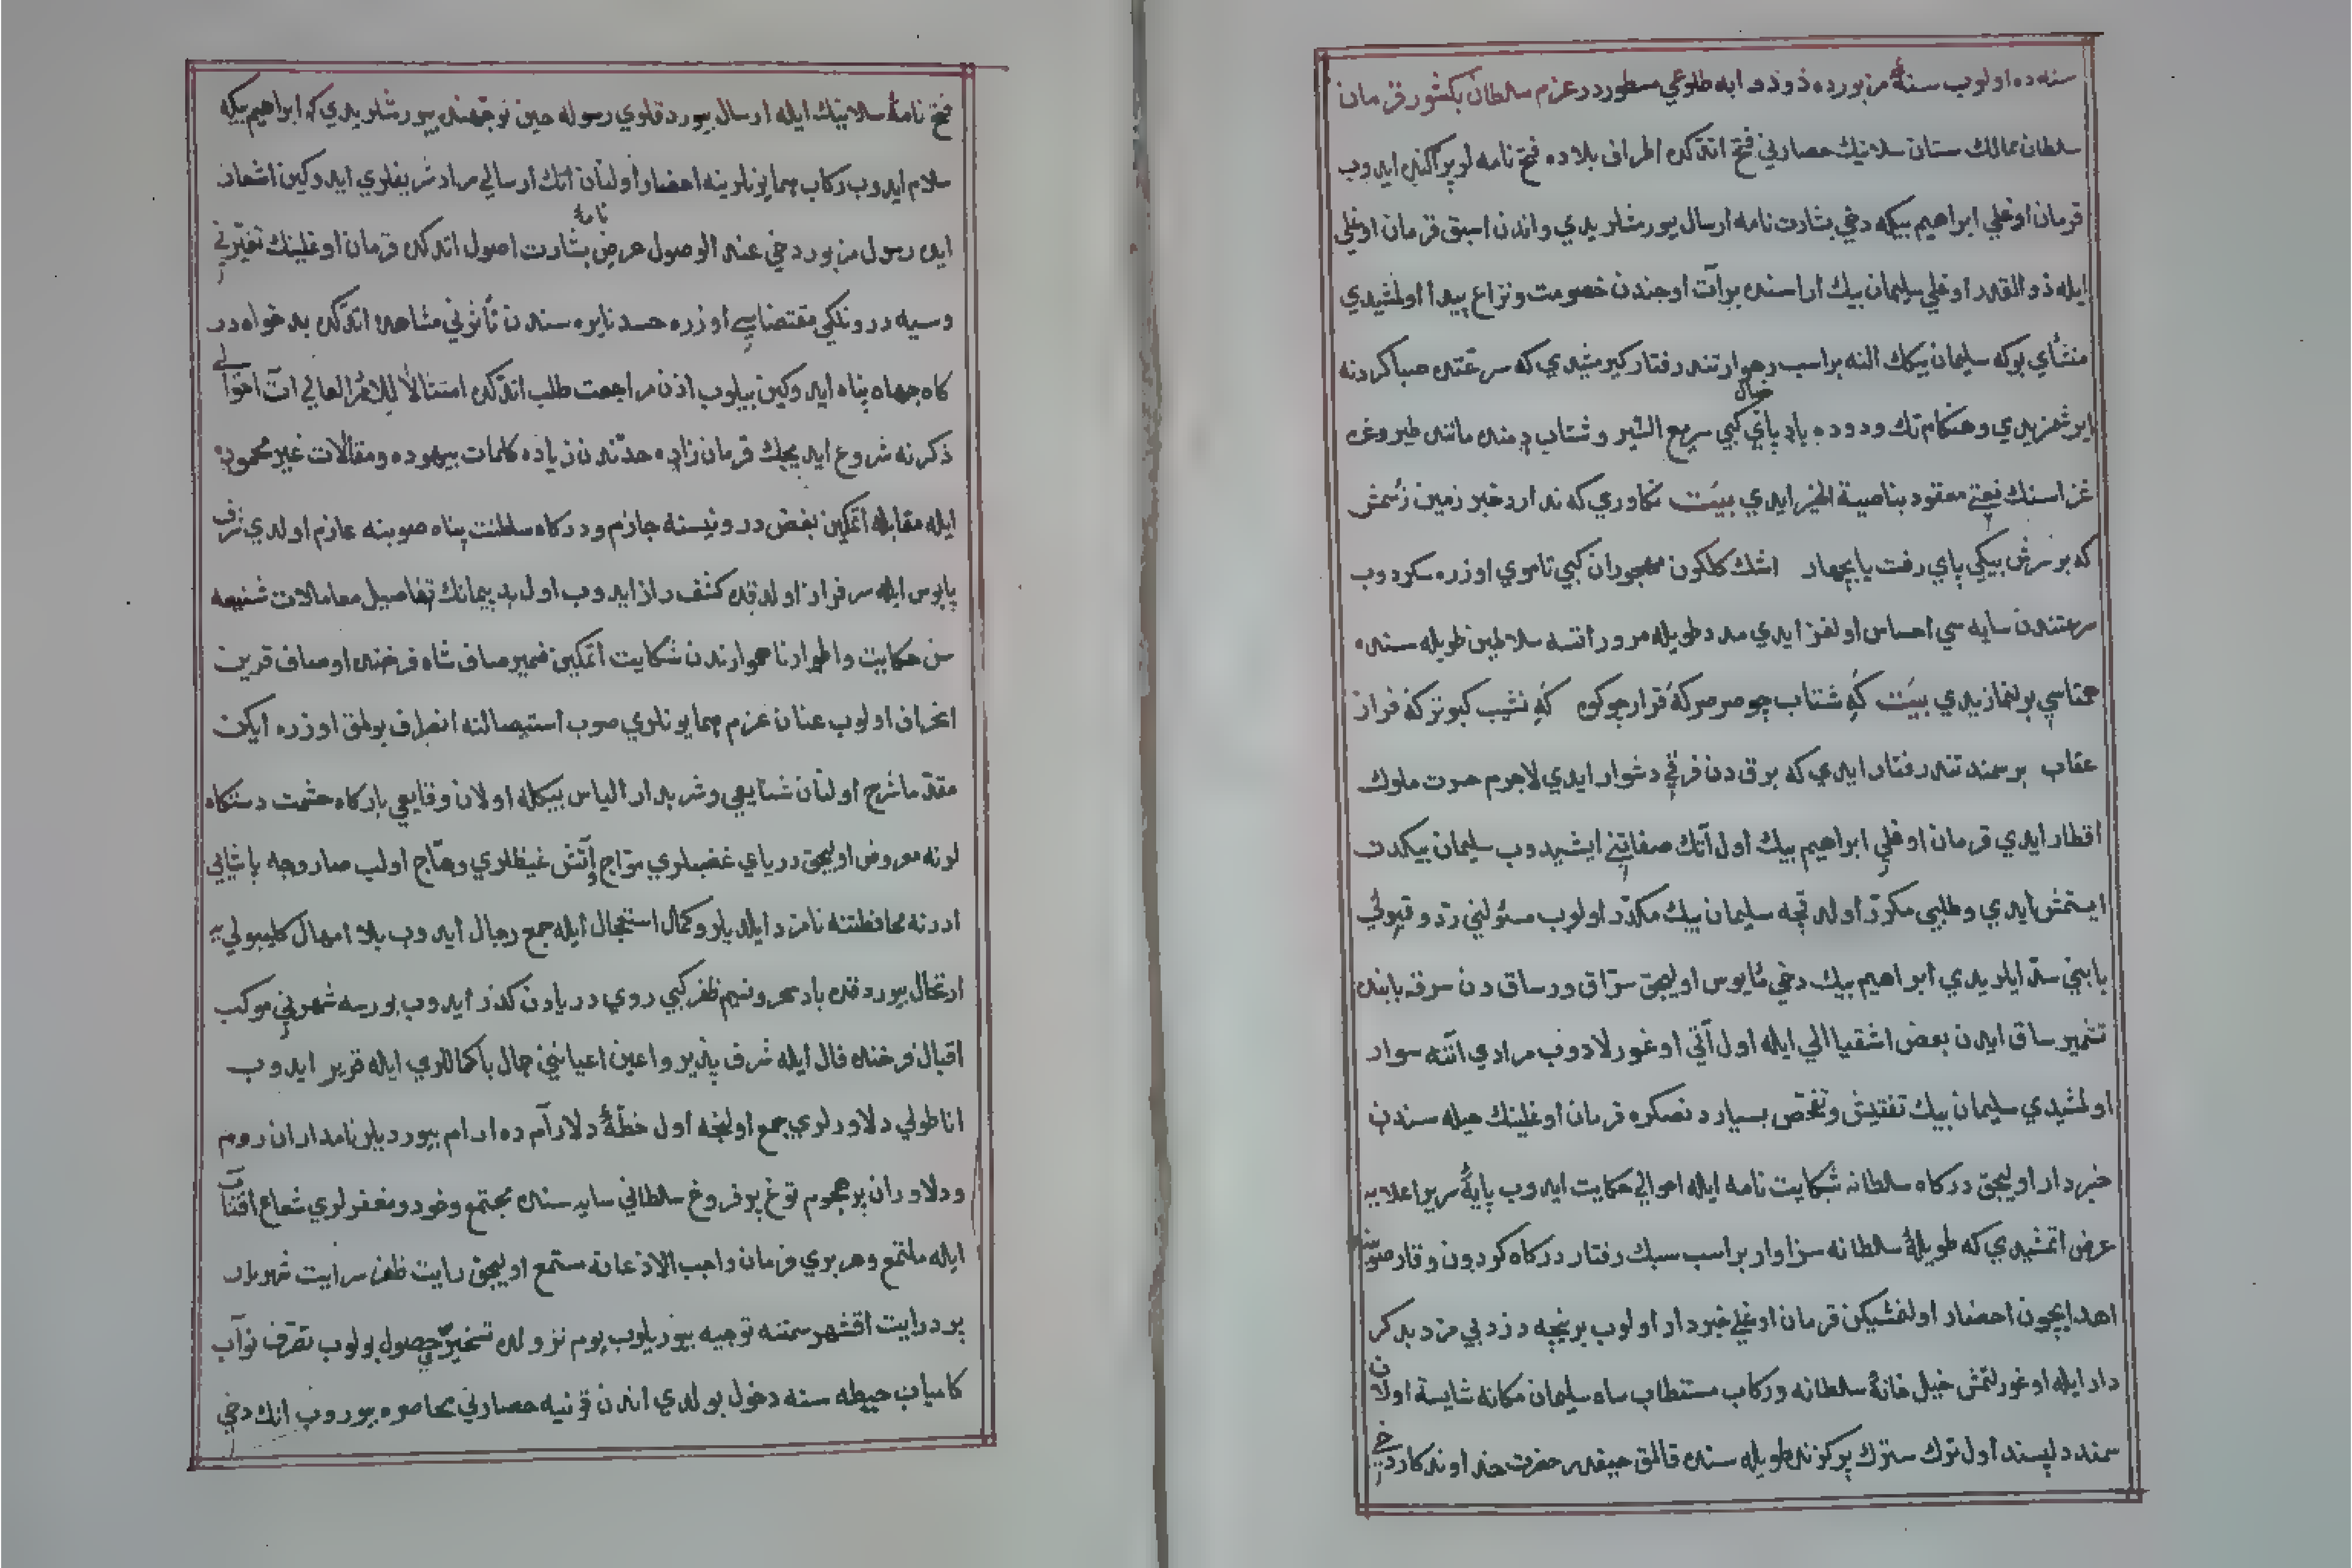 سنه ده اولوب سنۀ مزبورده ذو ذوابه طلوعي مسطوردر عزم سلطان بكشور قرمان
سلطان ممالك ستان سلانيك حصارني فتح اتدكده اطراف بلاده فتح نامه لر پراكنده ايدوب
قرمان اوغلي ابراهيم بيكه دخي بشارت نامه ارسال يورمشلريدي واندن اسبق قرمان اوغلي
ايله ذو القدر اوغلي سليمان بيك اراسنده برآت اوجندن خصومت ونزاع پيدا اولمشيدي
منشأي بوكه سليمان بيكك النه براسب رهوار تند رفتار كيرمشيدي كه سرعتده صبا كردنه
ايرشمزيدي وهنكام تك ودوده باد پاي خيال كبي سريع السير وشتاب دمنده مانند طير وغره
غراسنك نعتي معقود بناصية الخير ايدي بيت تكاوري كه ندارد خبر زمين زسمش
كه بر سرش بيكي پاي رفت يا بچهار اشك كلكون مهجوران كبي تاموي اوزره سكردوب
سرعتندن سايه سي احساس اولنمز ايدي مدد طويله مرور انتسه سلاطين طويله سنده
همتاسي بولنمازيدي بيت كه شتاب چو صرصر كه قرار چوكوه كه نشيب كبوتر كه فراز
عقاب بر سمند تند رفتار ايدي كه برق دن فرقي دشوار ايدي لاجرم حسرت ملوك
اقطار ايدي قرمان اوغلي ابراهيم بيك اول آتك صفاتني ايشيدوب سليمان بيكدن
ايستمش ايدي وطلبي مكرر اولدقجه سليمان بيك مكدر اولوب مسئولني رد وقبولي
بابني سد ايلريدي ابراهيم بيك دخي مايوس اوليجق سراق ورساق دن سرقه بابنده
تشمير ساق ايدن بعض اشقيا الي ايله اول آتي اوغورلادوب مرادي آتنه سوار
اولمشيدي سليمان بيك تفتيش وتفحص بسياردنصكره قرمان اوغلينك حيله سندن
خبردار اوليجق دركاه سلطانه شكايت نامه ايله احوالي حكايت ايدوب پايۀ سرير اعلايه
عرض اتمشيدي كه طويلۀ سلطانه سزاوار براسب سبك رفتار دركاه كردون وقار صوبنه
اهدا ايچون احضار اولنمشيكن قرمان اوغلي خبردار اولوب برنيچه دزد بي مزد بدكر
دار ايله اوغورلتمش خيل خانۀ سلطانه وركاب مستطاب ساه سليمان مكانه شايسة اولان
سمند دلپسند اول ترك سترك پركزند طويله سنده قالمق حيفدر حضرت خداوندكار دخي
فتح نامۀ سلانيك ايله ارسال بيوردقلري رسوله حين توجهنده بيورمشلريدي كه ابراهيم بيكه
سلام ايدوب ركاب همايونلرينه احضار اولنان آتك ارسالي مراد شريفلري ايدوكين اشعار
ايده رسول مزبور دخي عند الوصول عرض بشارت نامۀ اصول اتدكده قرمان اوغلينك تغيرني
وسيه درونلكي مقتضاسي اوزره حسد نايره سندن تأثرني مشاهده اتدكده بدخواه در
كاه جهان پناه ايدوكين بيلوب اذن مراجعت طلب اتدكده امتثالا للامر العالي آت احوالي
ذكرنه شروع ايديجك قرمان زاده حدندن زياده كلمات بيهوده ومقالات غير محموده
ايله مقابله اتمكين بغض دروننسنه جازم ودركاه سلطنت پناه صوبنه عازم اولدي شرف
پابوس ايله سرفراز اولدقده كشف راز ايدوب اول بد پيمانك تفاصيل معاملات شنيعه
سن حكايت واطوار ناهموارندن شكايت اتمكين ضمير صاف شاه فرخنده اوصاف قرين
انحراف اولوب عنان عزم همايونلري صوب استيصالنه انصراف بولمق اوزره ايكن
مقدما شرح اولنان شنايعي وشربدار الياس بيكله اولان وقايعي باركاه حشمت دستكاه
لرنه معروض اوليجق درياي غضبلري مواج وآتش غيظلري وهاج اولب صاروجه پاشايي
ادرنه محافظتنه نامزد ايلديلر وكمال استعجال ايله جمع رجال ايدوب بلا امهال كليبولي يه
ارتحال بيوردقده باد سحر ونسيم ظفر كبي روي دريادن كذر ايدوب بورسه شهرني موكب
اقبال فرخنده فال ايله شرف پذير واعين اعيانيني جمال باكماللري ايله قرير ايدوب
اناطولي دلاورلري جمع اولنجه اول خطۀ دلارآم ده ارام بيورديلر نامداران روم
ودلاوران پرهجوم توغ پرفروغ سلطاني سايه سنده مجتمع وخود ومغفرلري شعاع آفتاب
ايله ملتمع وهر بري فرمان واجب الاذعانه مستمع اوليجق رايت ظفر سرايت شهريار
پر درايت اقشهر سمتنه توجيه بيوريلوب يوم نزولده تسخير حصول بولوب تصرف نوآب
كامياب حيطه سنه دخول بولدي اندن قونيه حصارني محاصره بيوروب انك دخي